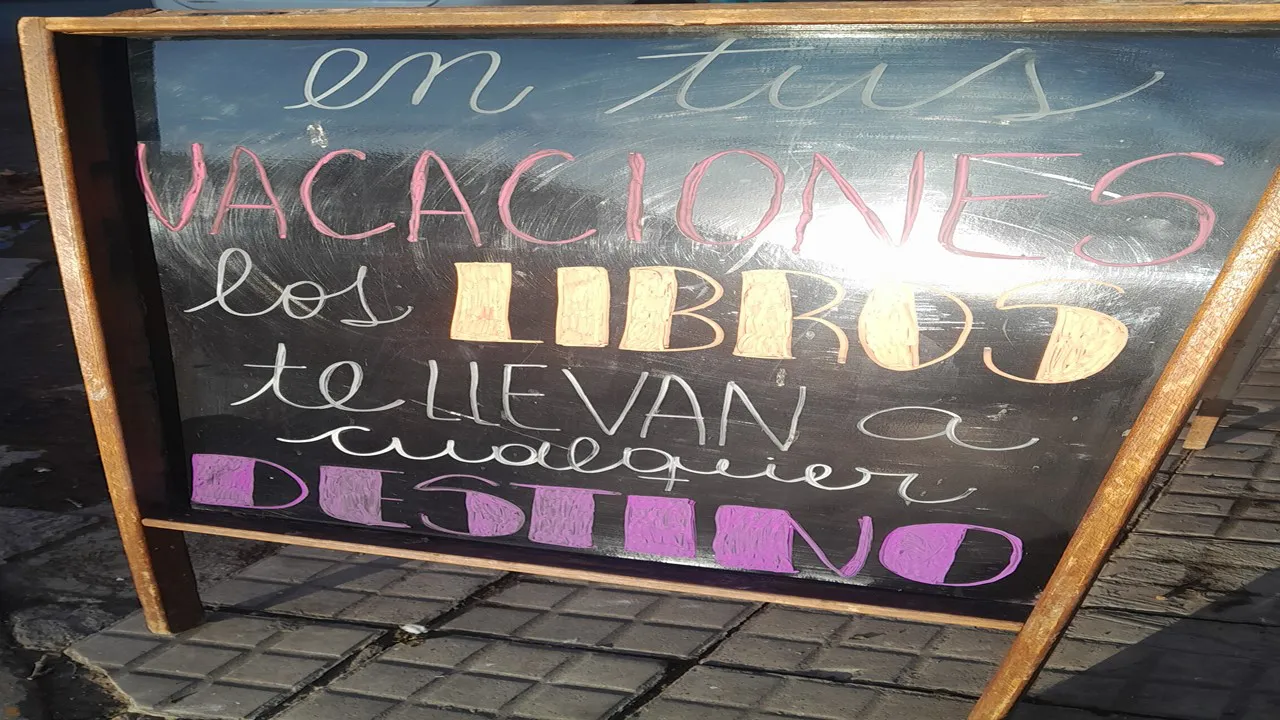 en tus
VACACIONES
los LIBROS
te LLEVAN a
cualquier
DESTINO